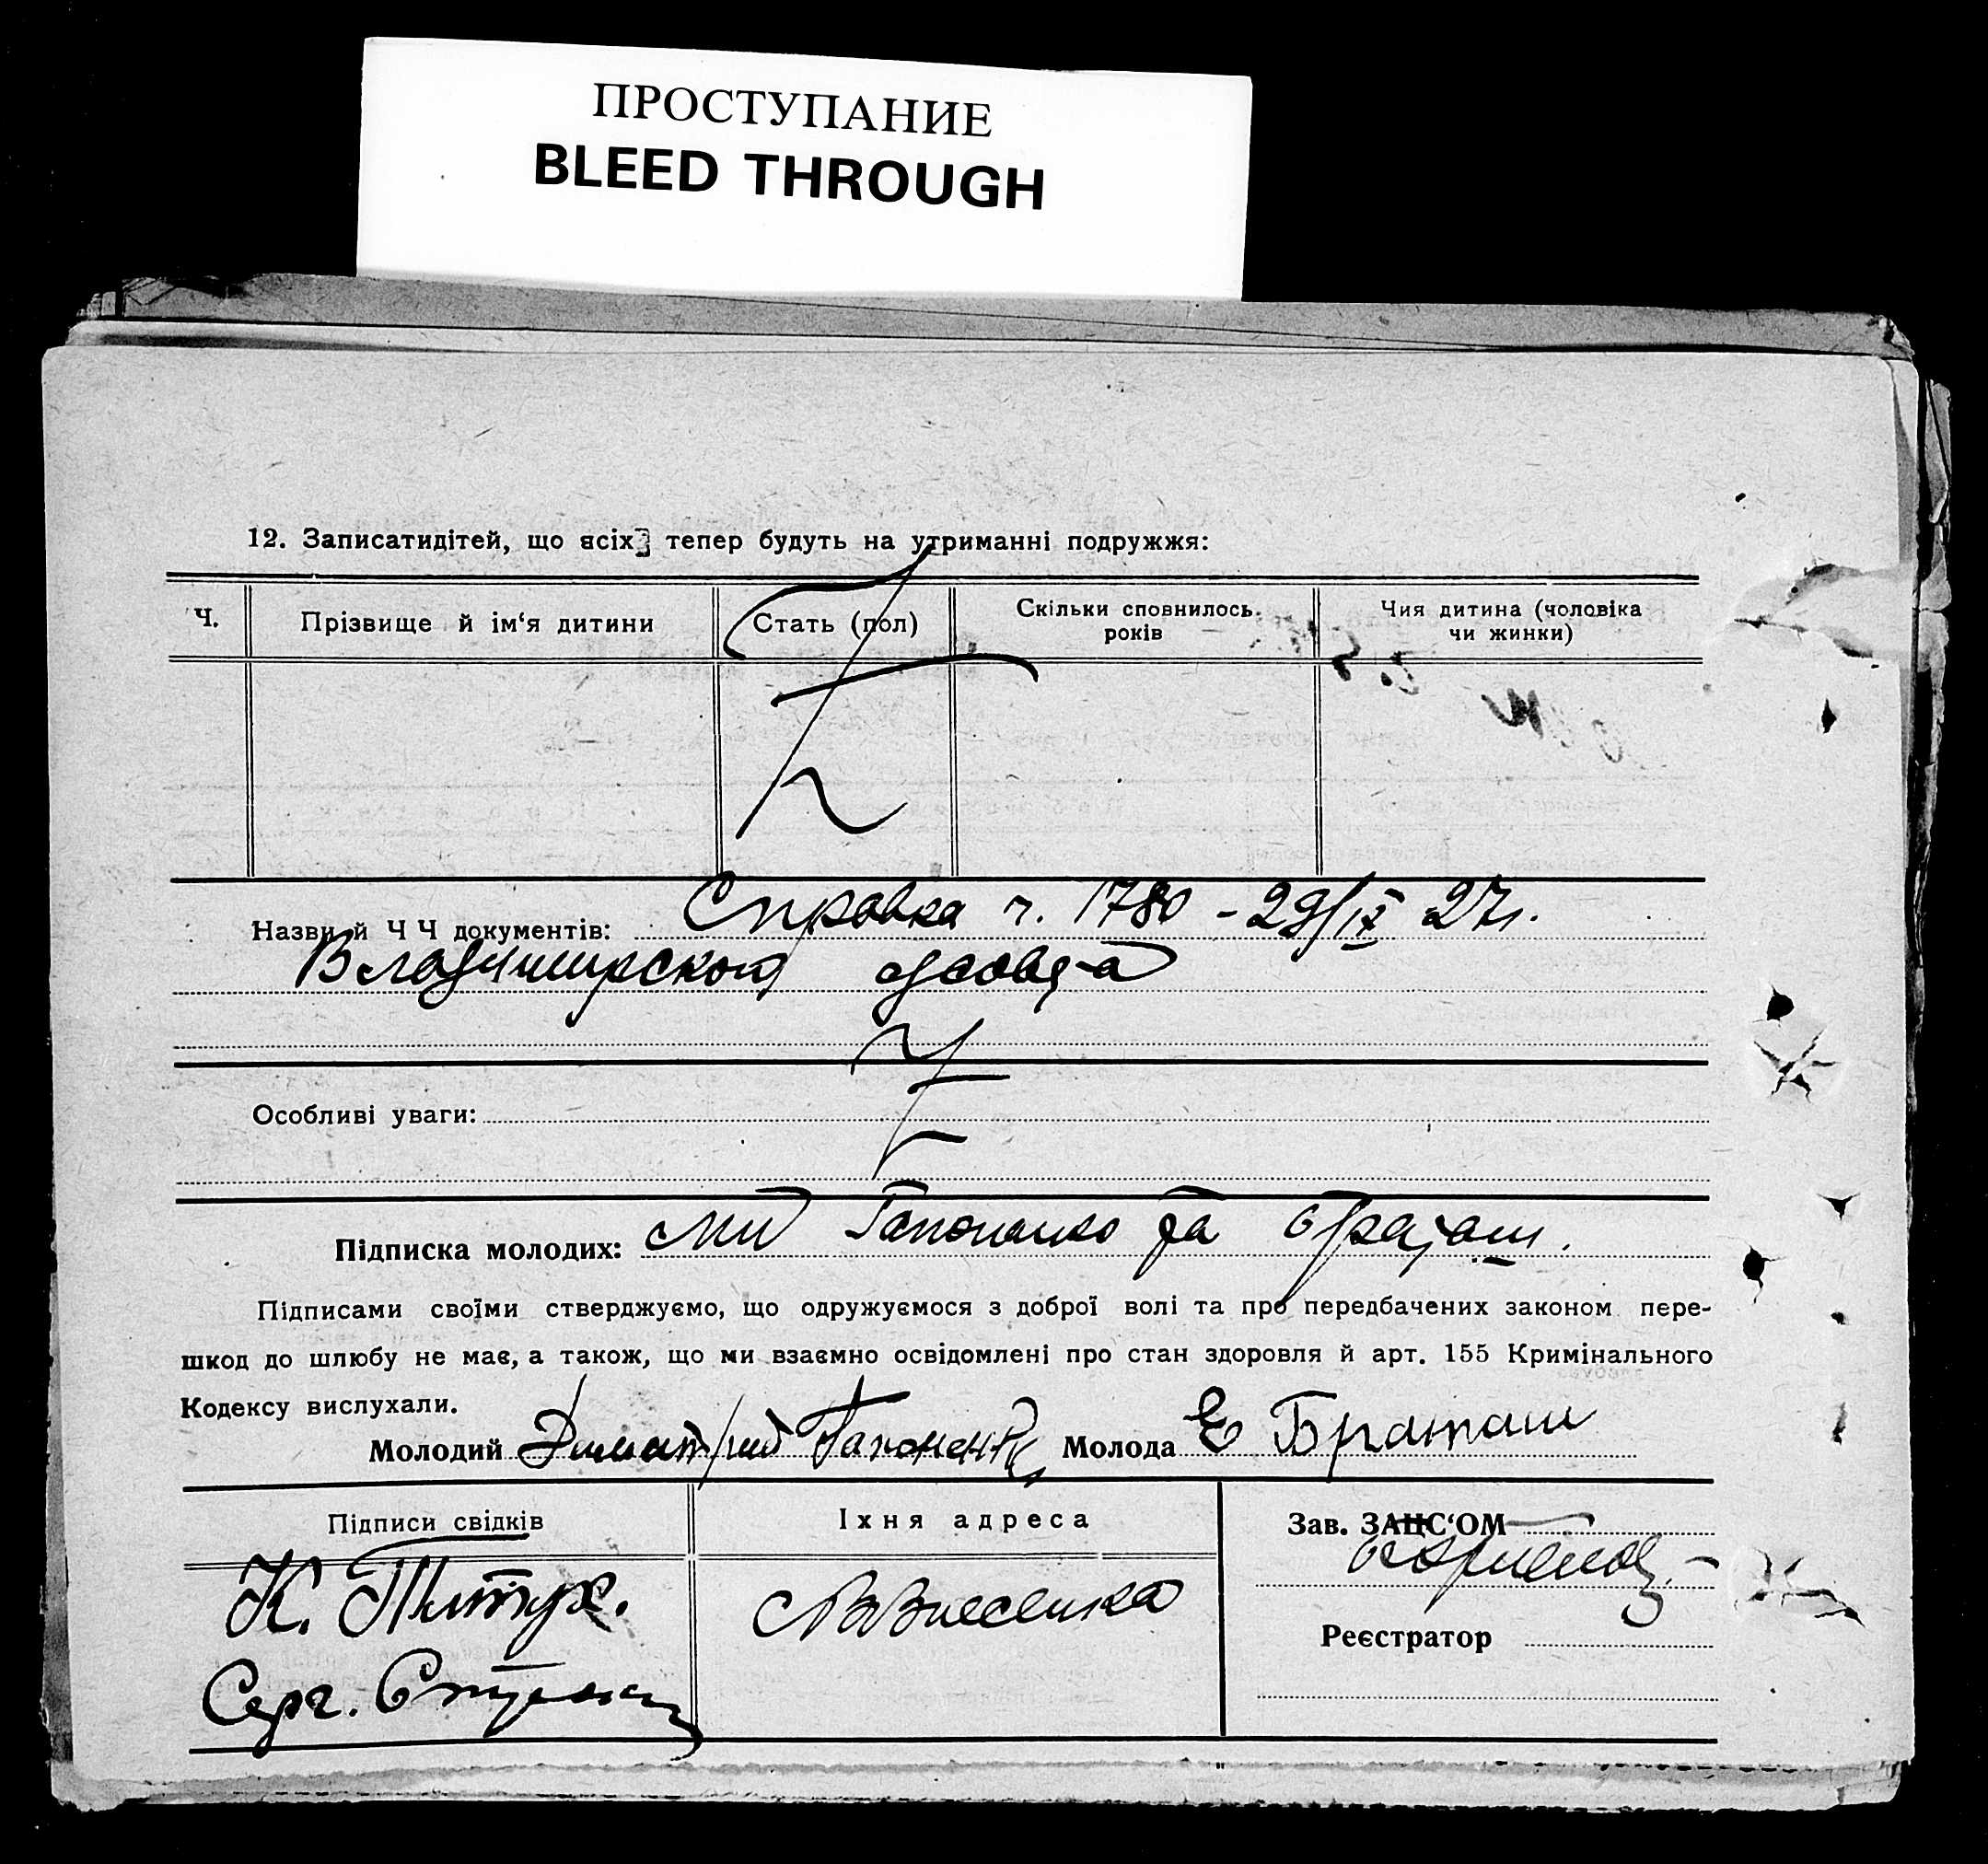 ПРОСТУПАНИЕ
BLEED THROUGH
12. Записатидітей, що всіх тепер будуть на утриманні подружжя:
Ч.
Прізвище й ім‘я дитини
Стать (пол)
Скільки сповнилось.
років
Чия дитина (чоловіка
чи жинки)
Назви й Ч Ч документів: Справка ч. 1780 - 29/IX 27 г.
Особливі уваги:
Підписка молодих: Ми Гапоненко та Браташ.
Підписами своїми стверджуємо, що одружуємося з доброї волі та про передбачених законом пере-
шкод до шлюбу не має, а також, що ми взаємно освідомлені про стан здоровля й арт. 155 Кримінального
Кодексу вислухали.
Молодий Димитрий Гапоненко Молода Е Браташ
Підписи свідків
Їхня адреса
Зав. ЗАЦС‘ОМ
К. Питух.
Реєстратор
Серг.